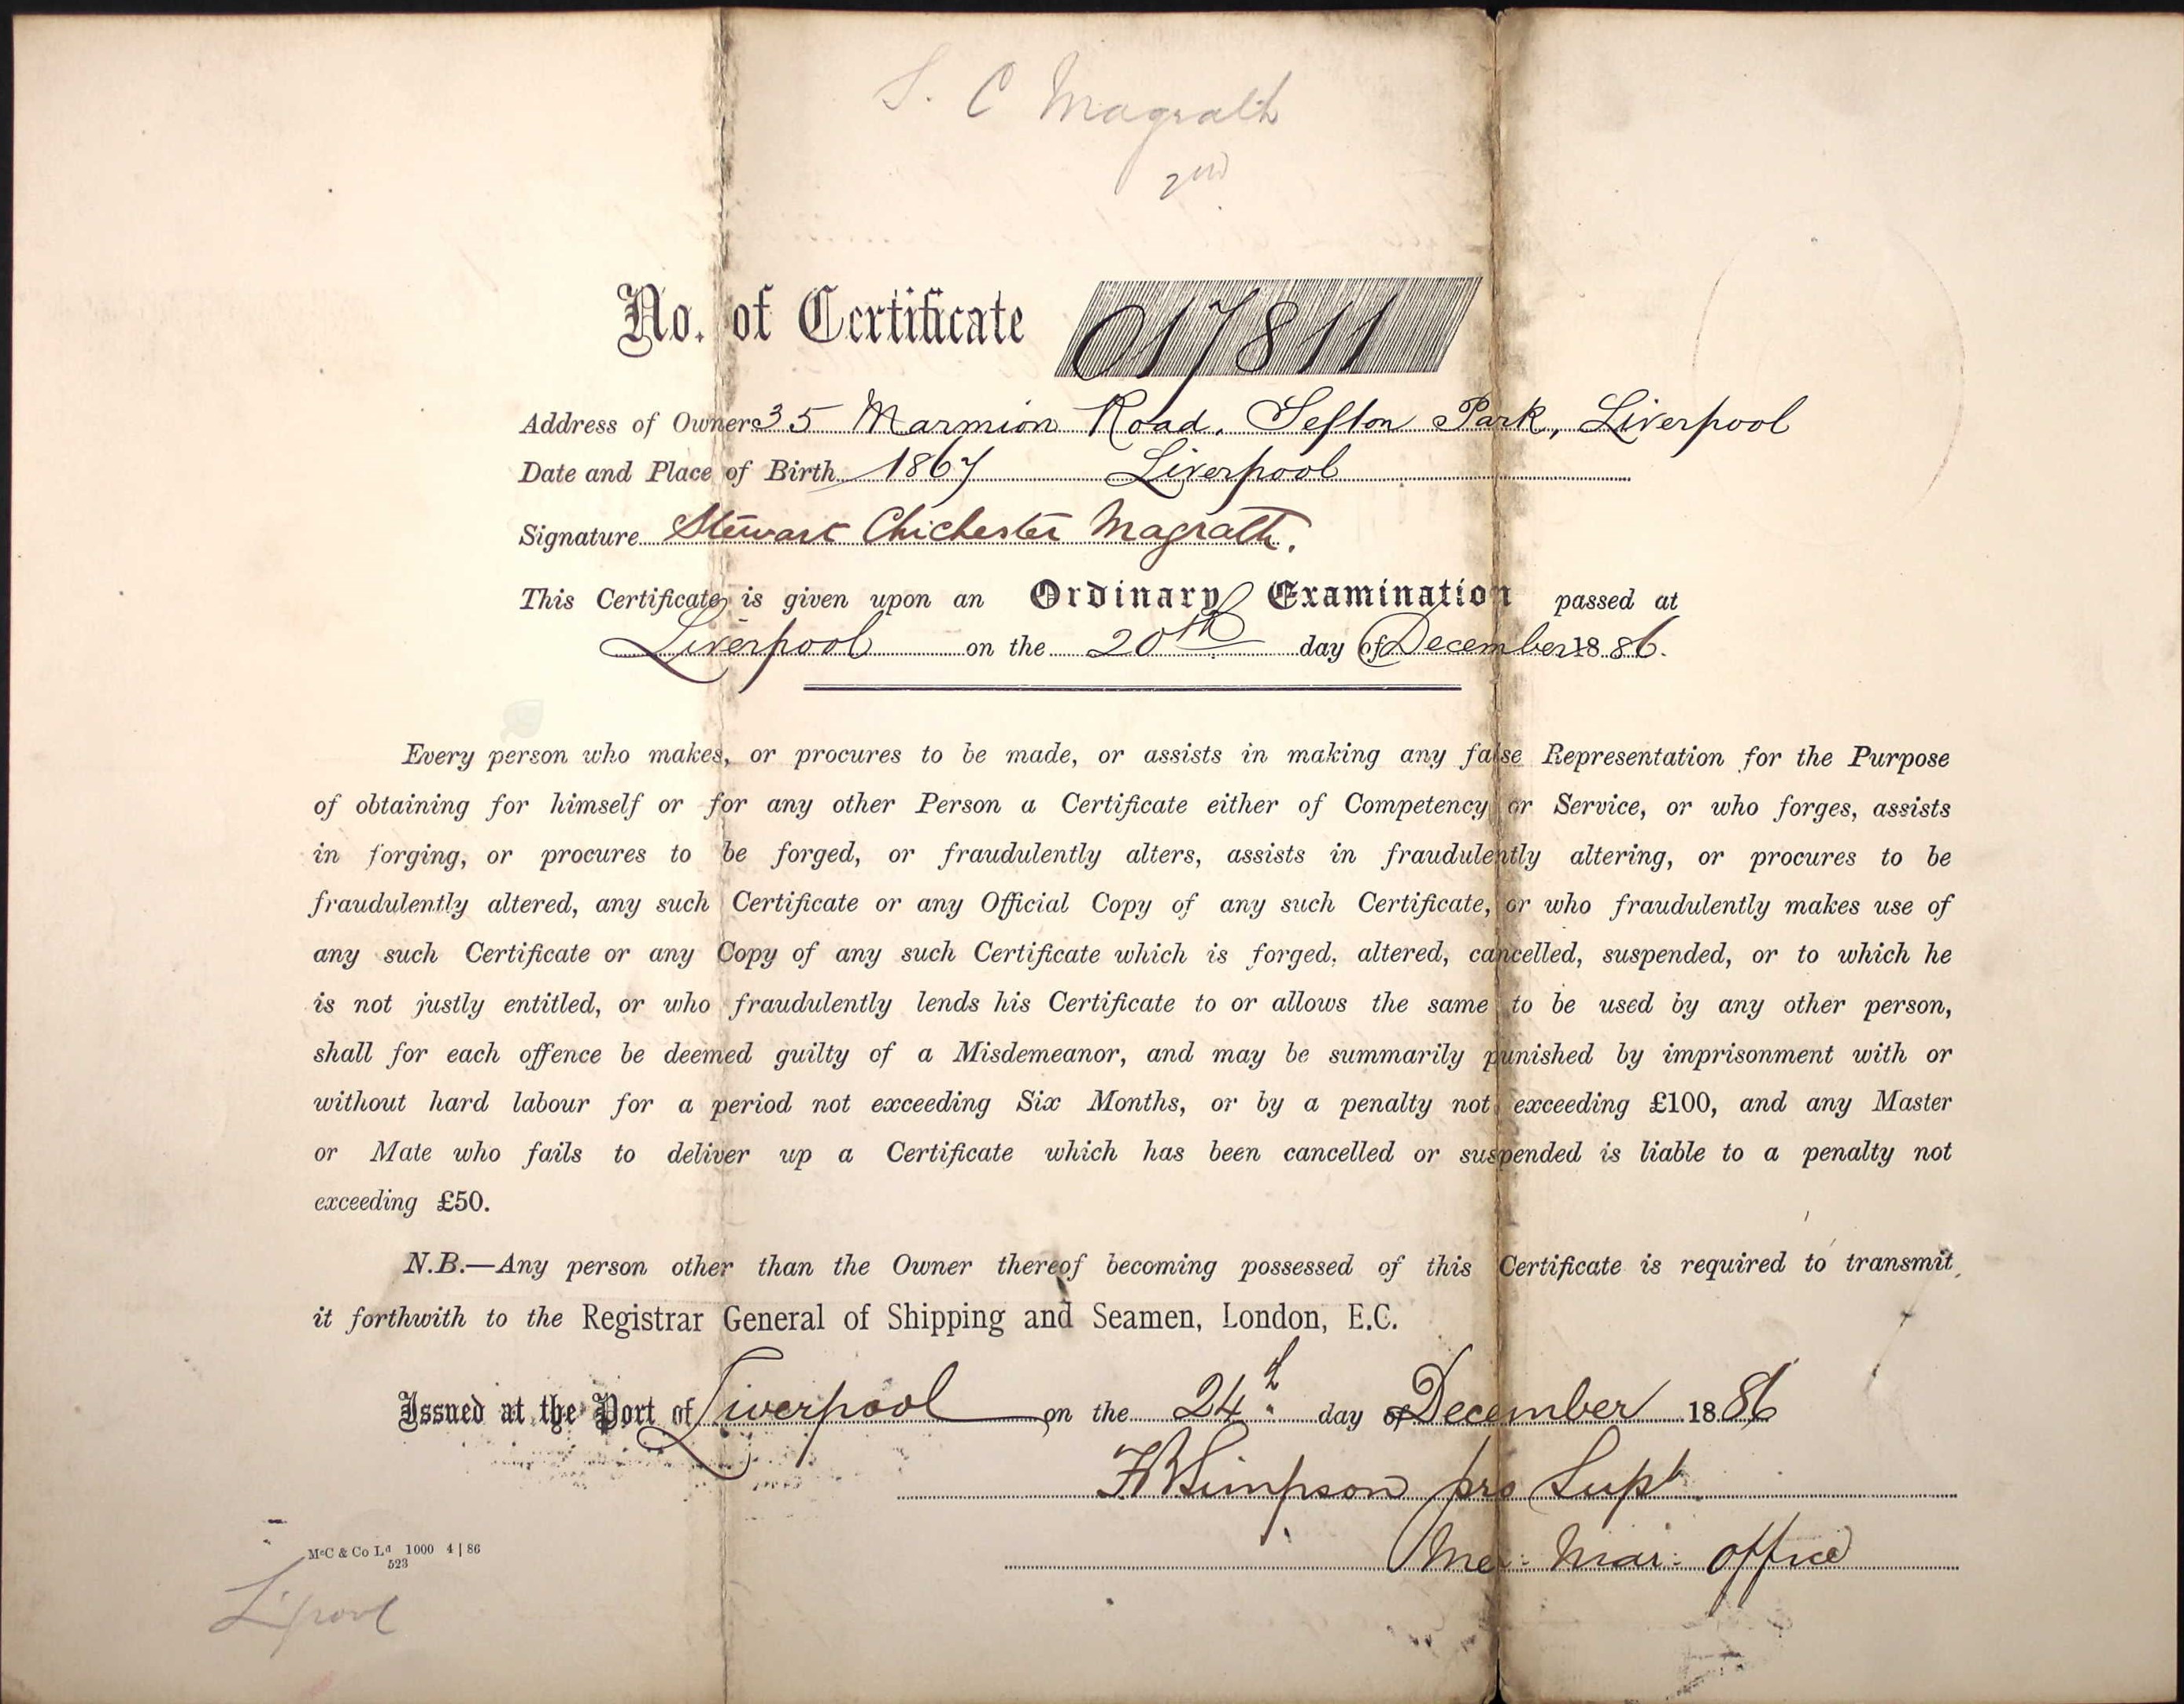 S. C Magrath
2nd
No. of Certificate 017811
Address of Owner 35 Marmion Road. Sefton Park, Liverpool
Date and Place of Birth 1867 Liverpool
Signature Stewart Chichester Magrath.
This Certificate is given upon an Ordinary Examination passed at
Liverpool on the 20th day of December 1886.
Every person who makes, or procures to be made, or assists in making any false Representation for the Purpose
of obtaining for himself or for any other Person a Certificate either of Competency or Service, or who forges, assists
in forging, or procures to be forged, or fraudulently alters, assists in fraudulently altering, or procures to be
fraudulently altered, any such Certificate or any Official Copy of any such Certificate, or who fraudulently makes use of
any such Certificate or any Copy of any such Certificate which is forged, altered, cancelled, suspended, or to which he
is not justly entitled, or who fraudulently lends his Certificate to or allows the same to be used by any other person,
shall for each offence be deemed guilty of a Misdemeanor, and may be summarily punished by imprisonment with or
without hard labour for a period not exceeding Six Months, or by a penalty not exceeding £100, and any Master
or Mate who fails to deliver up a Certificate which has been cancelled or suspended is liable to a penalty not
exceeding £50.
N.B.—Any person other than the Owner thereof becoming possessed of this Certificate is required to transmit
it forthwith to the Registrar General of Shipping and Seamen, London, E.C.
Issued at the Port of Liverpool on the 24th day of December 1886
Simpson pro Supt
Mer: Mar: Office
McC & Co Ld 1000 4|86
523
L'pool